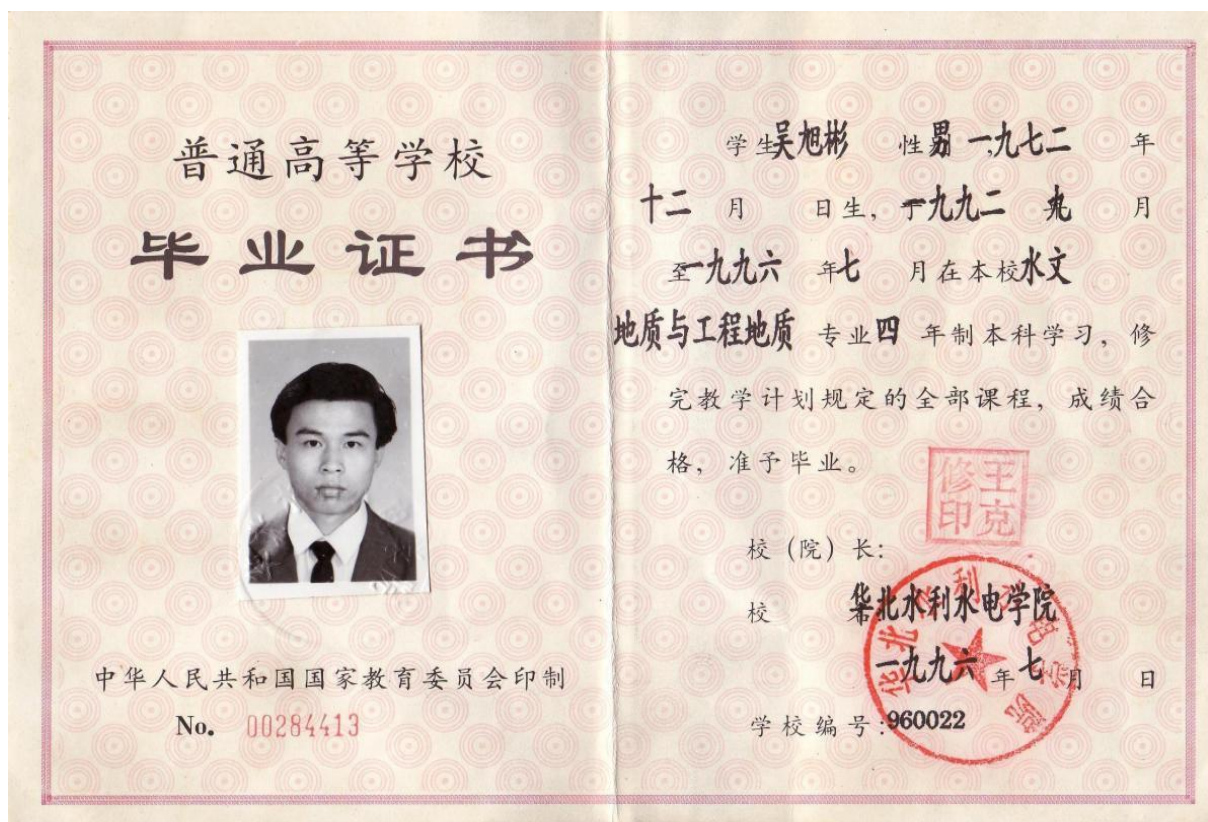 普通高等学校
毕业证书
中华人民共和国国家教育委员会印制
No. 00284413
学生吴旭彬 性男 一九七二 年
十二 月 日生，于一九九二 九 月
至一九九六 年七 月在本校水文
地质与工程地质 专业四 年制本科学习，修
完教学计划规定的全部课程，成绩合
格，准予毕业。
王克
修印
校（院）长：
校 华北水利水电学院
一九九六 年七 月 日
学校编号：960022
华北水利水电学院